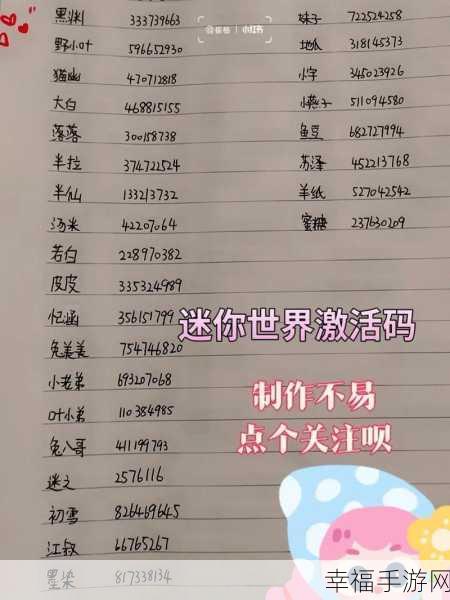 黑渊 333739663
野小叶 596652930
猫幽 470712818
大白 468815155
落落 300158738
半拉 374722524
半仙 133213732
汤米 42207064
若白 228970382
皮皮 335324989
忆涵 356151799
兔美美 754746820
小老弟 693207068
叶小弟 110384985
兔八哥 411199793
迷之 2576116
初雪 826469645
江叙 66765267
墨染 817338134
妹子 722524258
地瓜 318145373
小宇 345023926
小燕子 511094580
鱼豆 682727994
苏泽 452213768
羊纸 527042542
蜜糖 237630209
小红书
迷你世界激活码
制作不易
点个关注呗
幸福手游网